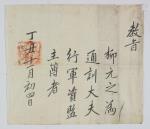 教旨
柳元之為
通訓大夫
行軍資監
主簿者
丁丑十月初四日